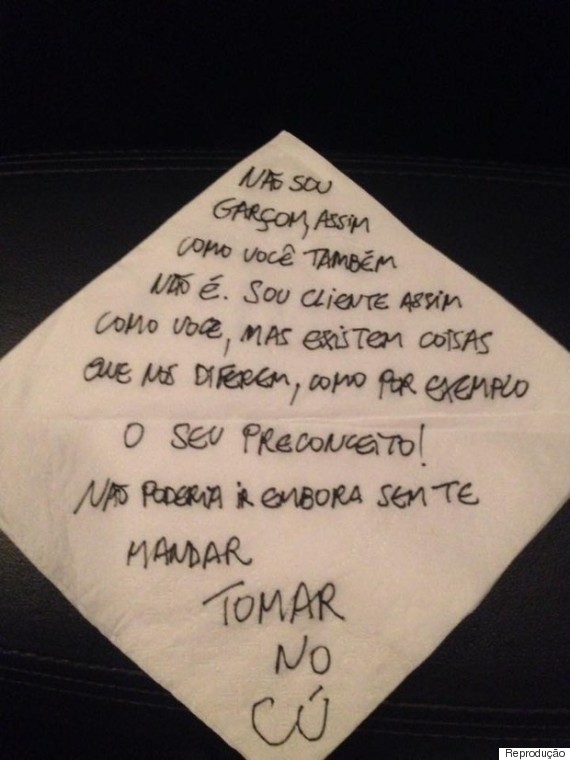 NÃO SOU
GARÇOM, ASSIM
COMO VOCÊ TAMBÉM
NÃO É. SOU CLIENTE ASSIM
COMO VOCE, MAS EXISTEM COISAS
QUE NOS DIFEREM, COMO POR EXEMPLO
O SEU PRECONCEITO!
NÃO PODERIA IR EMBORA SEM TE
MANDAR
TOMAR
NO
CÚ
Reprodução